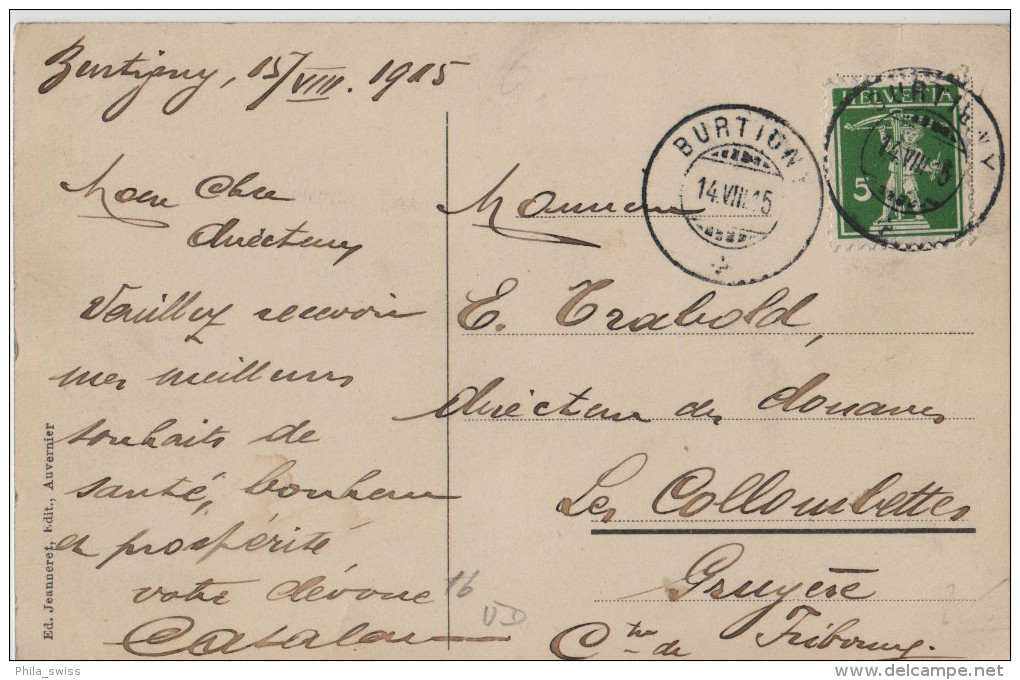 Burtigny, 15/VIII. 1915
Mon cher
directeur
Veuillez recevoir
mes meilleurs
souhaits de
santé, bonheur
et prospérité
votre dévoué
Ed. Jeanneret, Edit., Auvernier
16
VD
BURTIGNY
14.VIII.15
HELVETIA
5
BURTIGNY
14.VIII.15
Monsieur
E. Trabold,
directeur des douanes
Les Collombettes
Gruyère
Cton de Fribourg.
Phila_swiss
www.delcampe.net